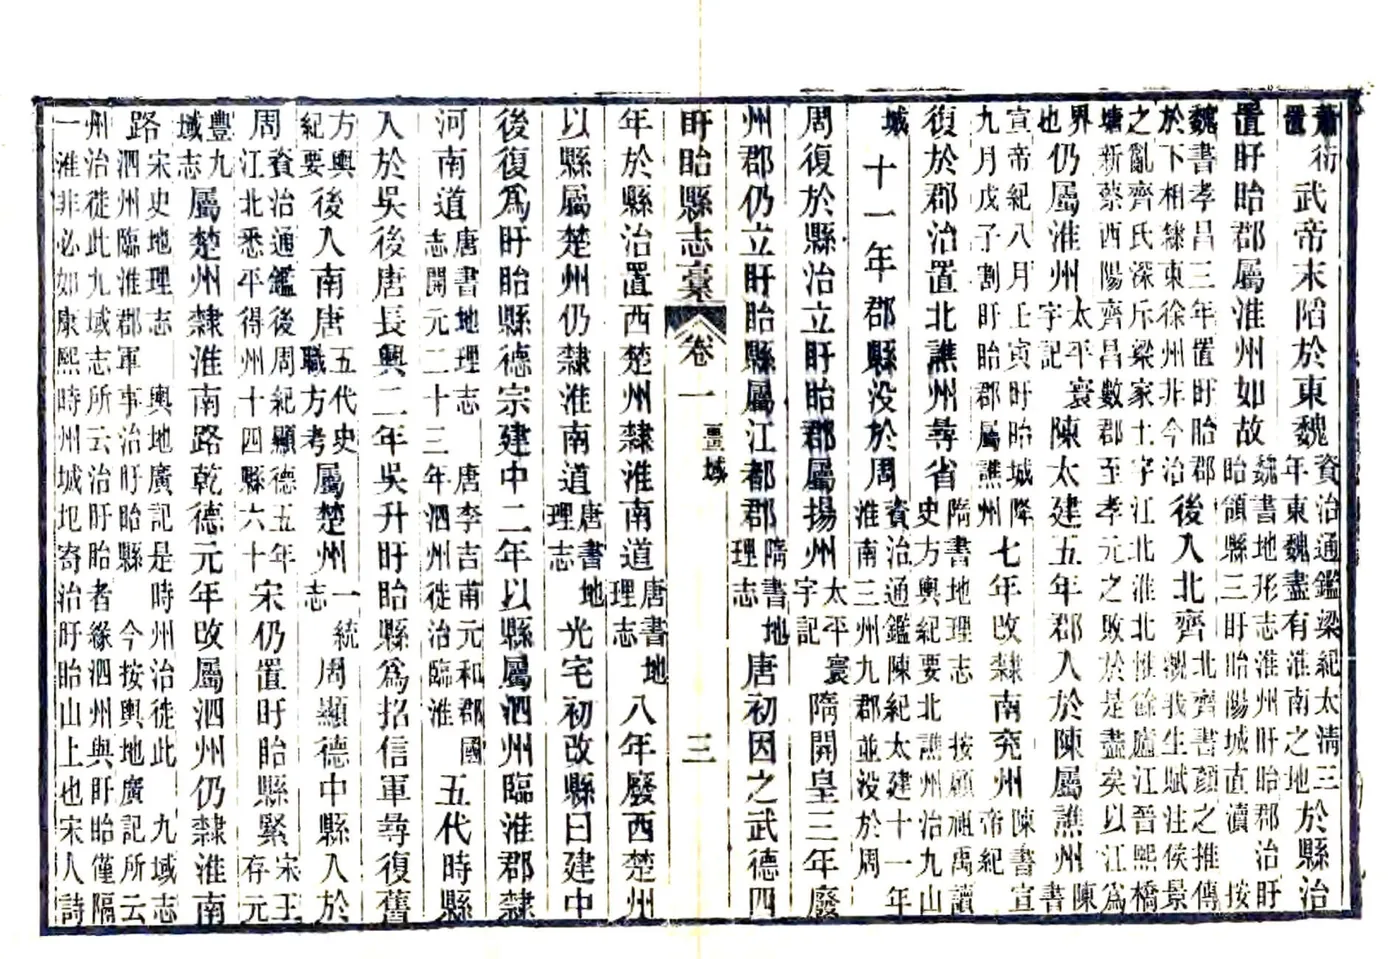 蕭衍
置
武帝末陷於東魏
資治通鑑梁紀太清三
年東魏盡有淮南之地
於縣治
置盱眙郡屬淮州如故
魏書地形志淮州盱眙郡治盱
眙領縣三盱眙陽城直瀆 按
魏書孝昌三年置盱眙郡
於下相隸東徐州非今治
後入北齊
北齊書顏之推傳
觀我生賦注侯景
之亂齊氏深斥梁家土宇江北淮北惟餘廬江晉熙橋
塘新蔡西陽齊昌數郡至孝元之敗於是盡矣以江爲
界
也
仍屬淮州
太平寰
宇記
陳太建五年郡入於陳屬譙州
陳
書
宣帝紀八月壬寅盱眙城降
九月戊子割盱眙郡屬譙州
七年改隸南兖州
陳書宣
帝紀
復於郡治置北譙州尋省
隋書地理志 按顧祖禹讀
史方輿紀要北譙州治九山
城
十一年郡縣没於周
資治通鑑陳紀太建十一年
淮南三州九郡並没於周
周復於縣治立盱眙郡屬揚州
太平寰
宇記
隋開皇三年廢
州郡仍立盱眙縣屬江都郡
隋書地
理志
唐初因之武德四
盱眙縣志稾 卷一 畺域 三
年於縣治置西楚州隸淮南道
唐書地
理志
八年廢西楚州
以縣屬楚州仍隸淮南道
唐書地
理志
光宅初改縣曰建中
後復爲盱眙縣德宗建中二年以縣屬泗州臨淮郡隸
河南道
唐書地理志 唐李吉甫元和郡國
志開元二十三年泗州徙治臨淮
五代時縣
入於吳後唐長興二年吳升盱眙縣爲招信軍尋復舊
方輿
紀要
後入南唐
五代史
職方考
屬楚州
一統
志
周顯德中縣入於
周
資治通鑑後周紀顯德五年
江北悉平得州十四縣六十
宋仍置盱眙縣緊
宋王
存元
豐九
域志
屬楚州隸淮南路乾德元年改屬泗州仍隸淮南
路
宋史地理志 輿地廣記是時州治徙此 九域志
泗州臨淮郡軍事治盱眙縣 今按輿地廣記所云
州治徙此九域志所云治盱眙者緣泗州與盱眙僅隔
一淮非必如康熙時州城圮寄治盱眙山上也宋人詩